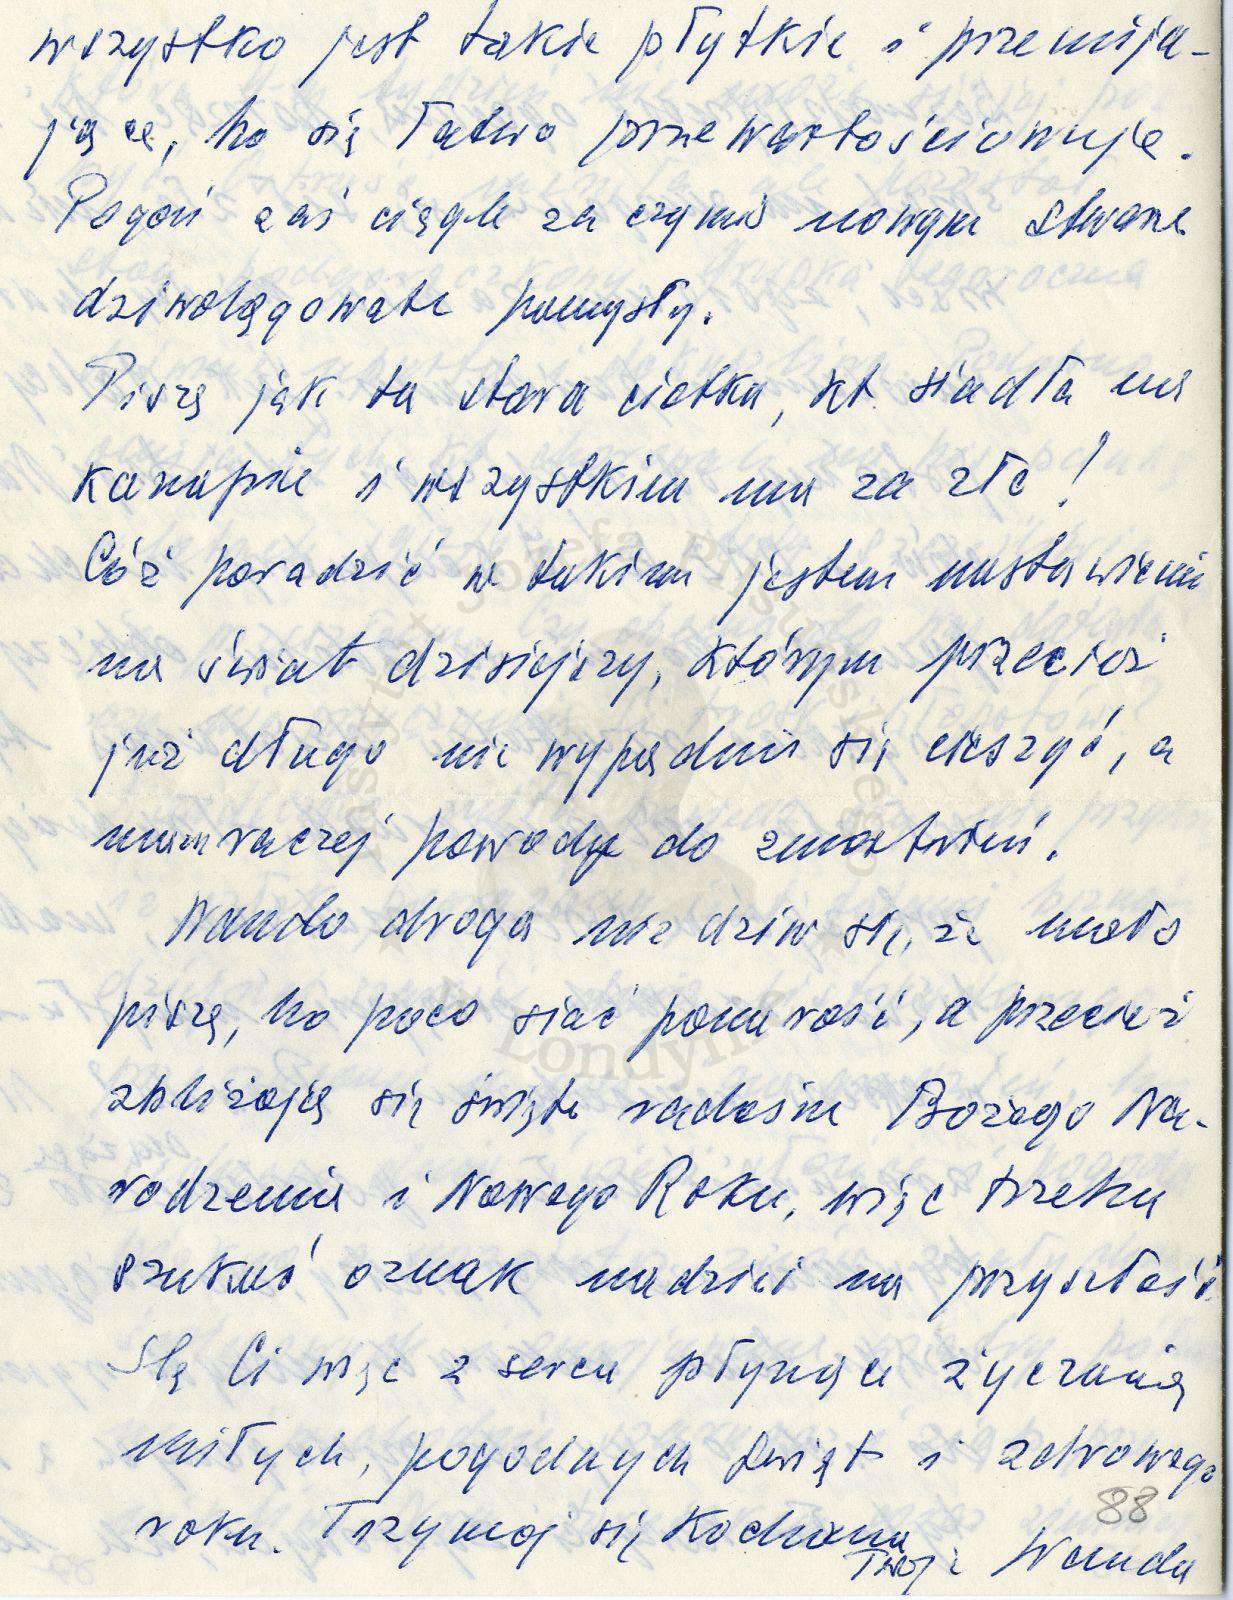 wszystko jest takie płytkie i przemija-
jące, bo się łatwo przewartościowuje.
Pogoń zaś ciągle za czymś nowym stwarza
dziwolągowate pomysły.
Piszę jak ta stara ciotka, kt. siadła na
kanapie i wszystkim ma za złe!
Cóż poradzić w takim jestem nastawieniu
na świat dzisiejszy, którym przecież
już długo nie wypadnie się cieszyć, a
mam raczej powody do zmartwień.
Wando droga nie dziw się, że mało
piszę, bo poco siać ponurość, a przecież
zbliżają się święta radosne Bożego Na-
rodzenia i Nowego Roku, więc trzeba
szukać oznak nadziei na przyszłość.
Ślę Ci więc z serca płynące życzenia
miłych, pogodnych świąt i zdrowego
roku. Trzymaj się Kochana
Twoja Wanda
88
Instytut Józefa Piłsudskiego
w Londynie